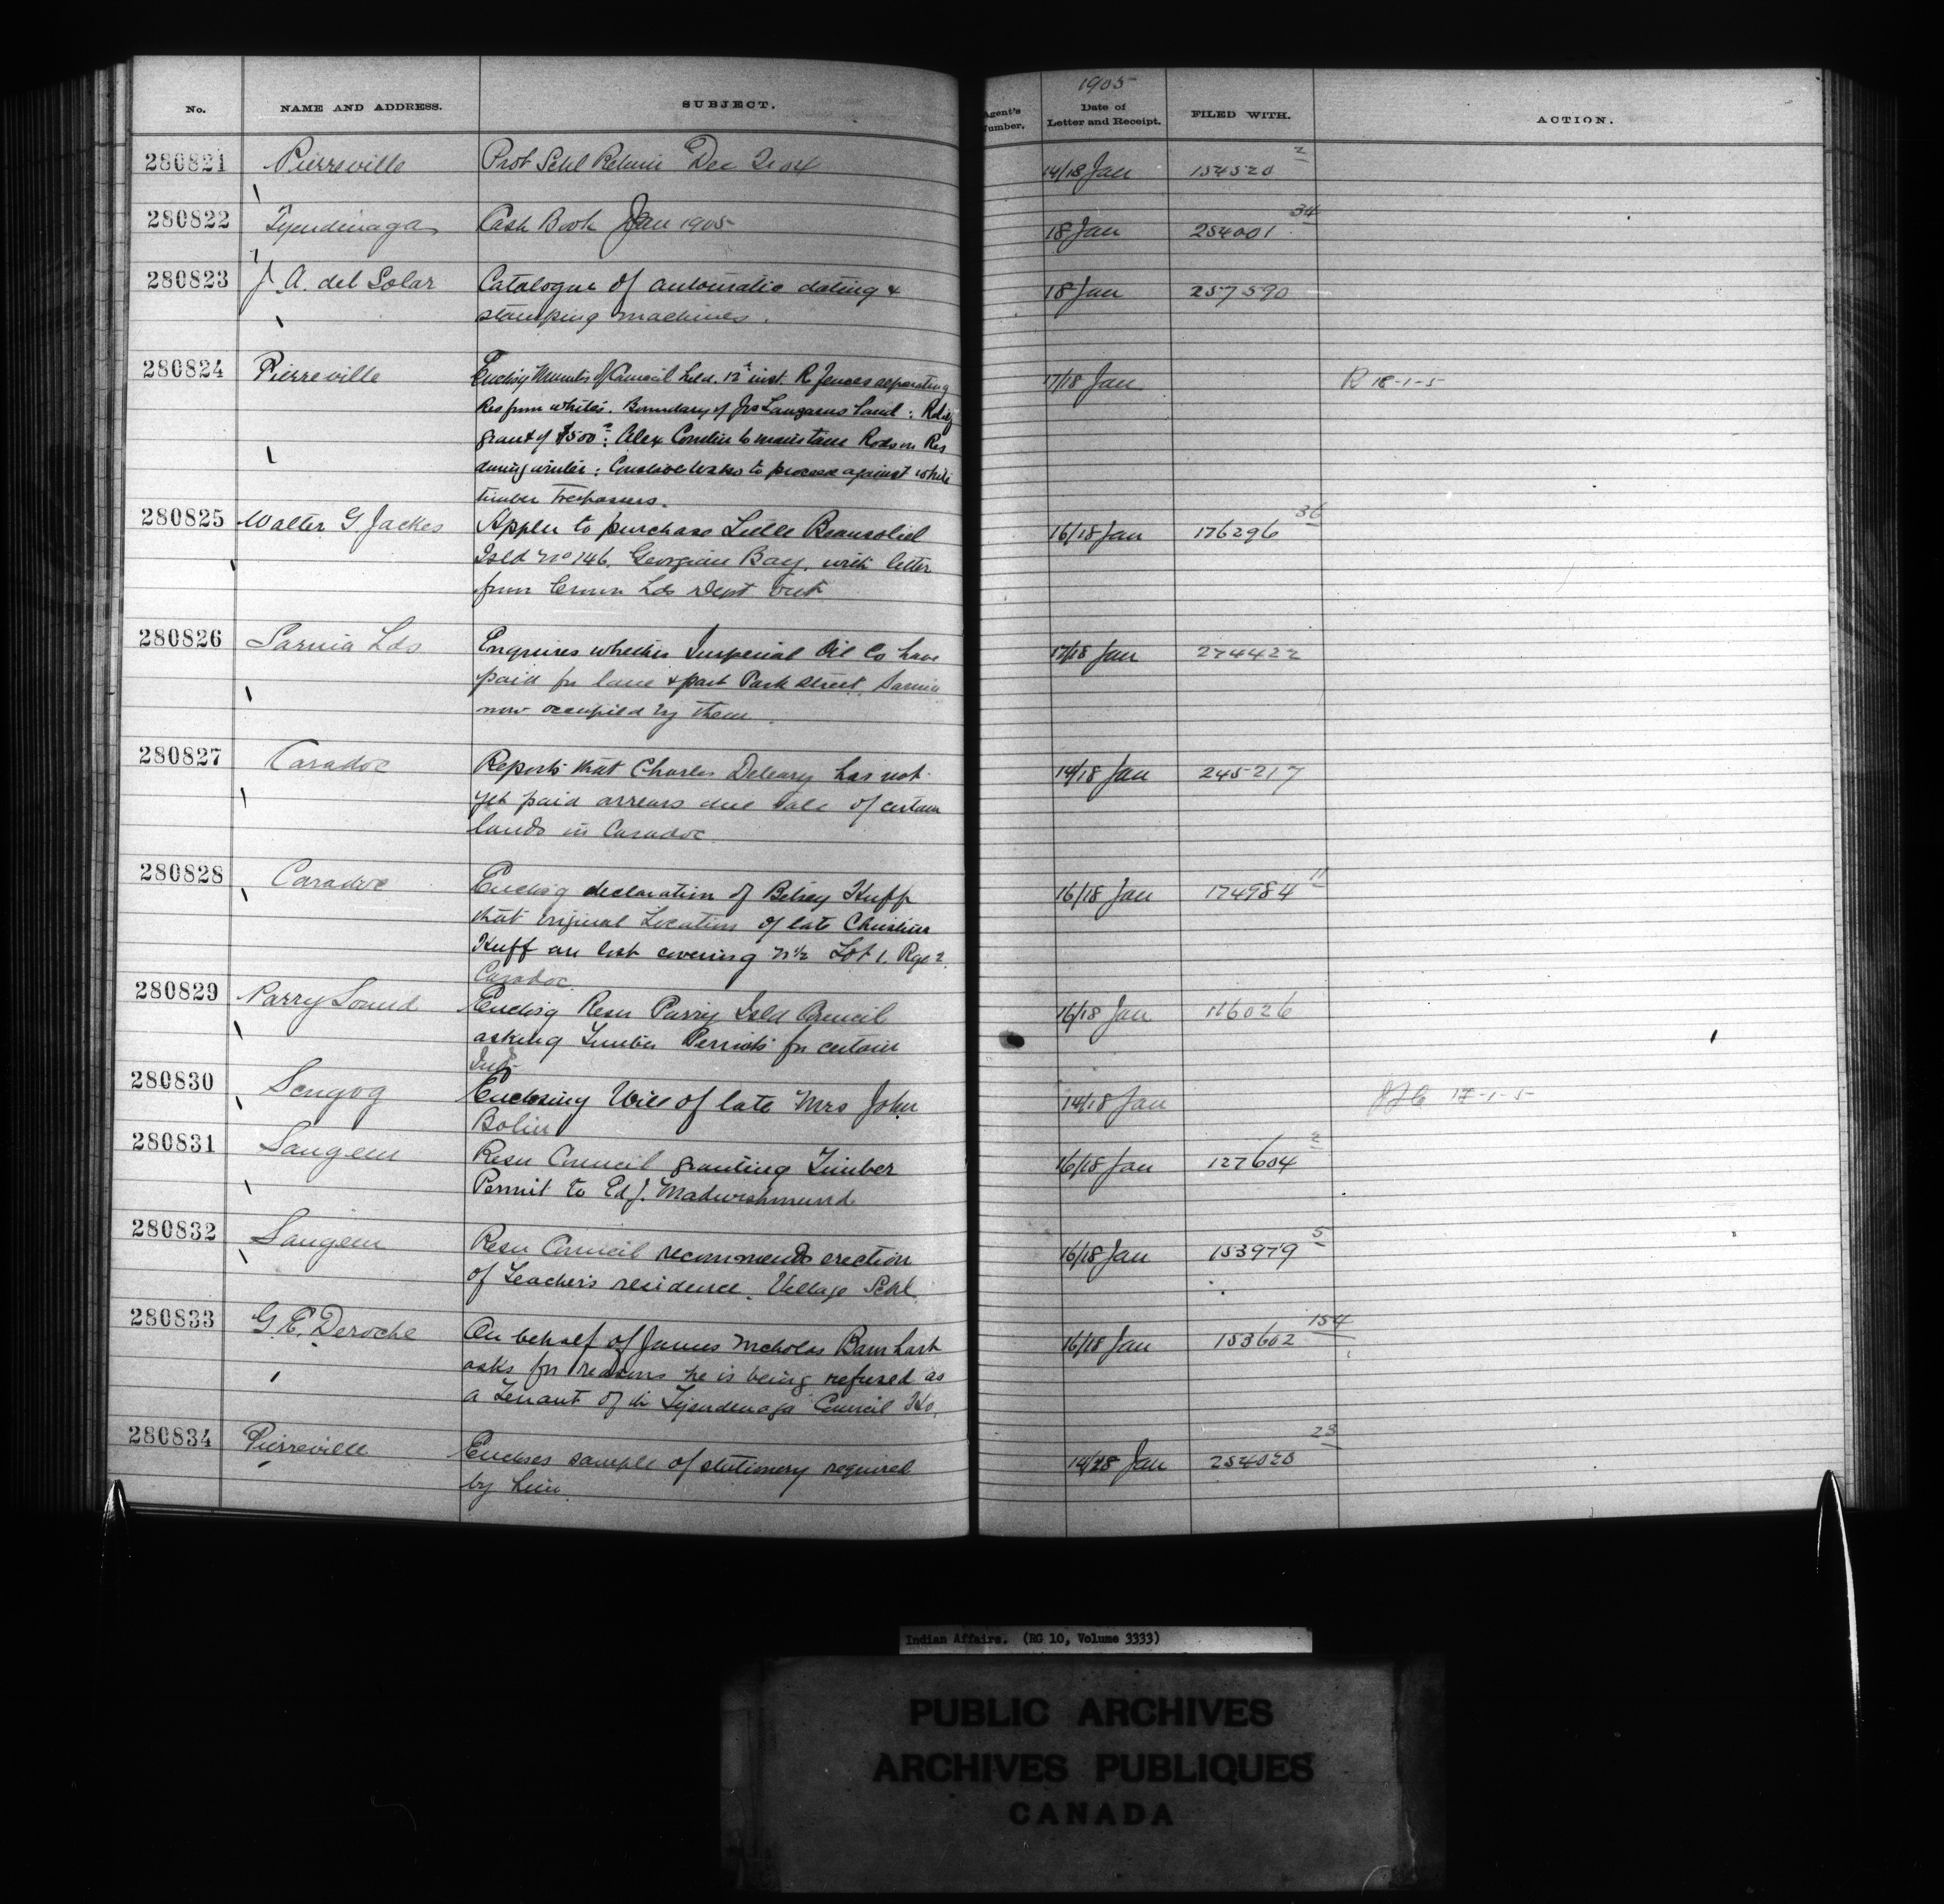 1905
No. NAME AND ADDRESS. SUBJECT. Agent's Number. Date of Letter and Receipt. FILED WITH. ACTION.
280821 Pierreville Prot Schl Return Dec 14/18 Jan 154520 2
280822 Tyendinaga Cash Book Jan 1905 18 Jan 254001 34
280823 J A. del Solar Catalogue of automatic dating & 18 Jan 257590
stamping machines.
280824 Pierreville Enclosg Minutes of Council held 12th inst. R fences separating 17/18 Jan R 18-1-5
Res from whites. Boundary of Land :
grant of $500 : Alex to maintain Roads on Res
during winter : to proceed against white
timber Trespassers.
280825 Walter G Jackes Appln to purchase Little Beausoliel 16/18 Jan 176296 36
Isld No 146, Georgian Bay, with letter
from Crown Lds Dept
280826 Sarnia Lds Enquires whether Imperial Oil Co have 17/18 Jan 274422
paid for lane & part Park Street, Sarnia
now occupied by them.
280827 Caradoc Reports that Charles Deleary has not 14/18 Jan 245217
yet paid arrears due sale of certain
lands in Caradoc
280828 Caradoc Enclosg declaration of Betsey Huff 16/18 Jan 174984 11
that original Location of late Christina
Huff are lost covering n½ Lot 1. Rge 2.
Caradoc.
280829 Parry Sound Enclosg Resn Parry Isld Council 16/18 Jan 116026
asking Timber Permits for certain
Inds
280830 Scugog Enclosing Will of late Mrs John 14/18 Jan 17-1-5
Bolin
280831 Saugeen Resn Council granting Timber 16/18 Jan 127604 2
Permit to Ed J. Madwishmund
280832 Saugeen Resn Council recommends erection 16/18 Jan 153979 5
of Teacher's residence, Village Schl.
280833 G. E. Deroche On behalf of James Nicholas Barnhart 16/18 Jan 153602 154
asks for reasons he is being refused as
a Tenant of the Tyendenaga Council Ho.
280834 Pierreville Encloses sample of stationery required 14/28 Jan 254020 23
by him
Indian Affairs. (RG 10, Volume 3333)
PUBLIC ARCHIVES
ARCHIVES PUBLIQUES
CANADA